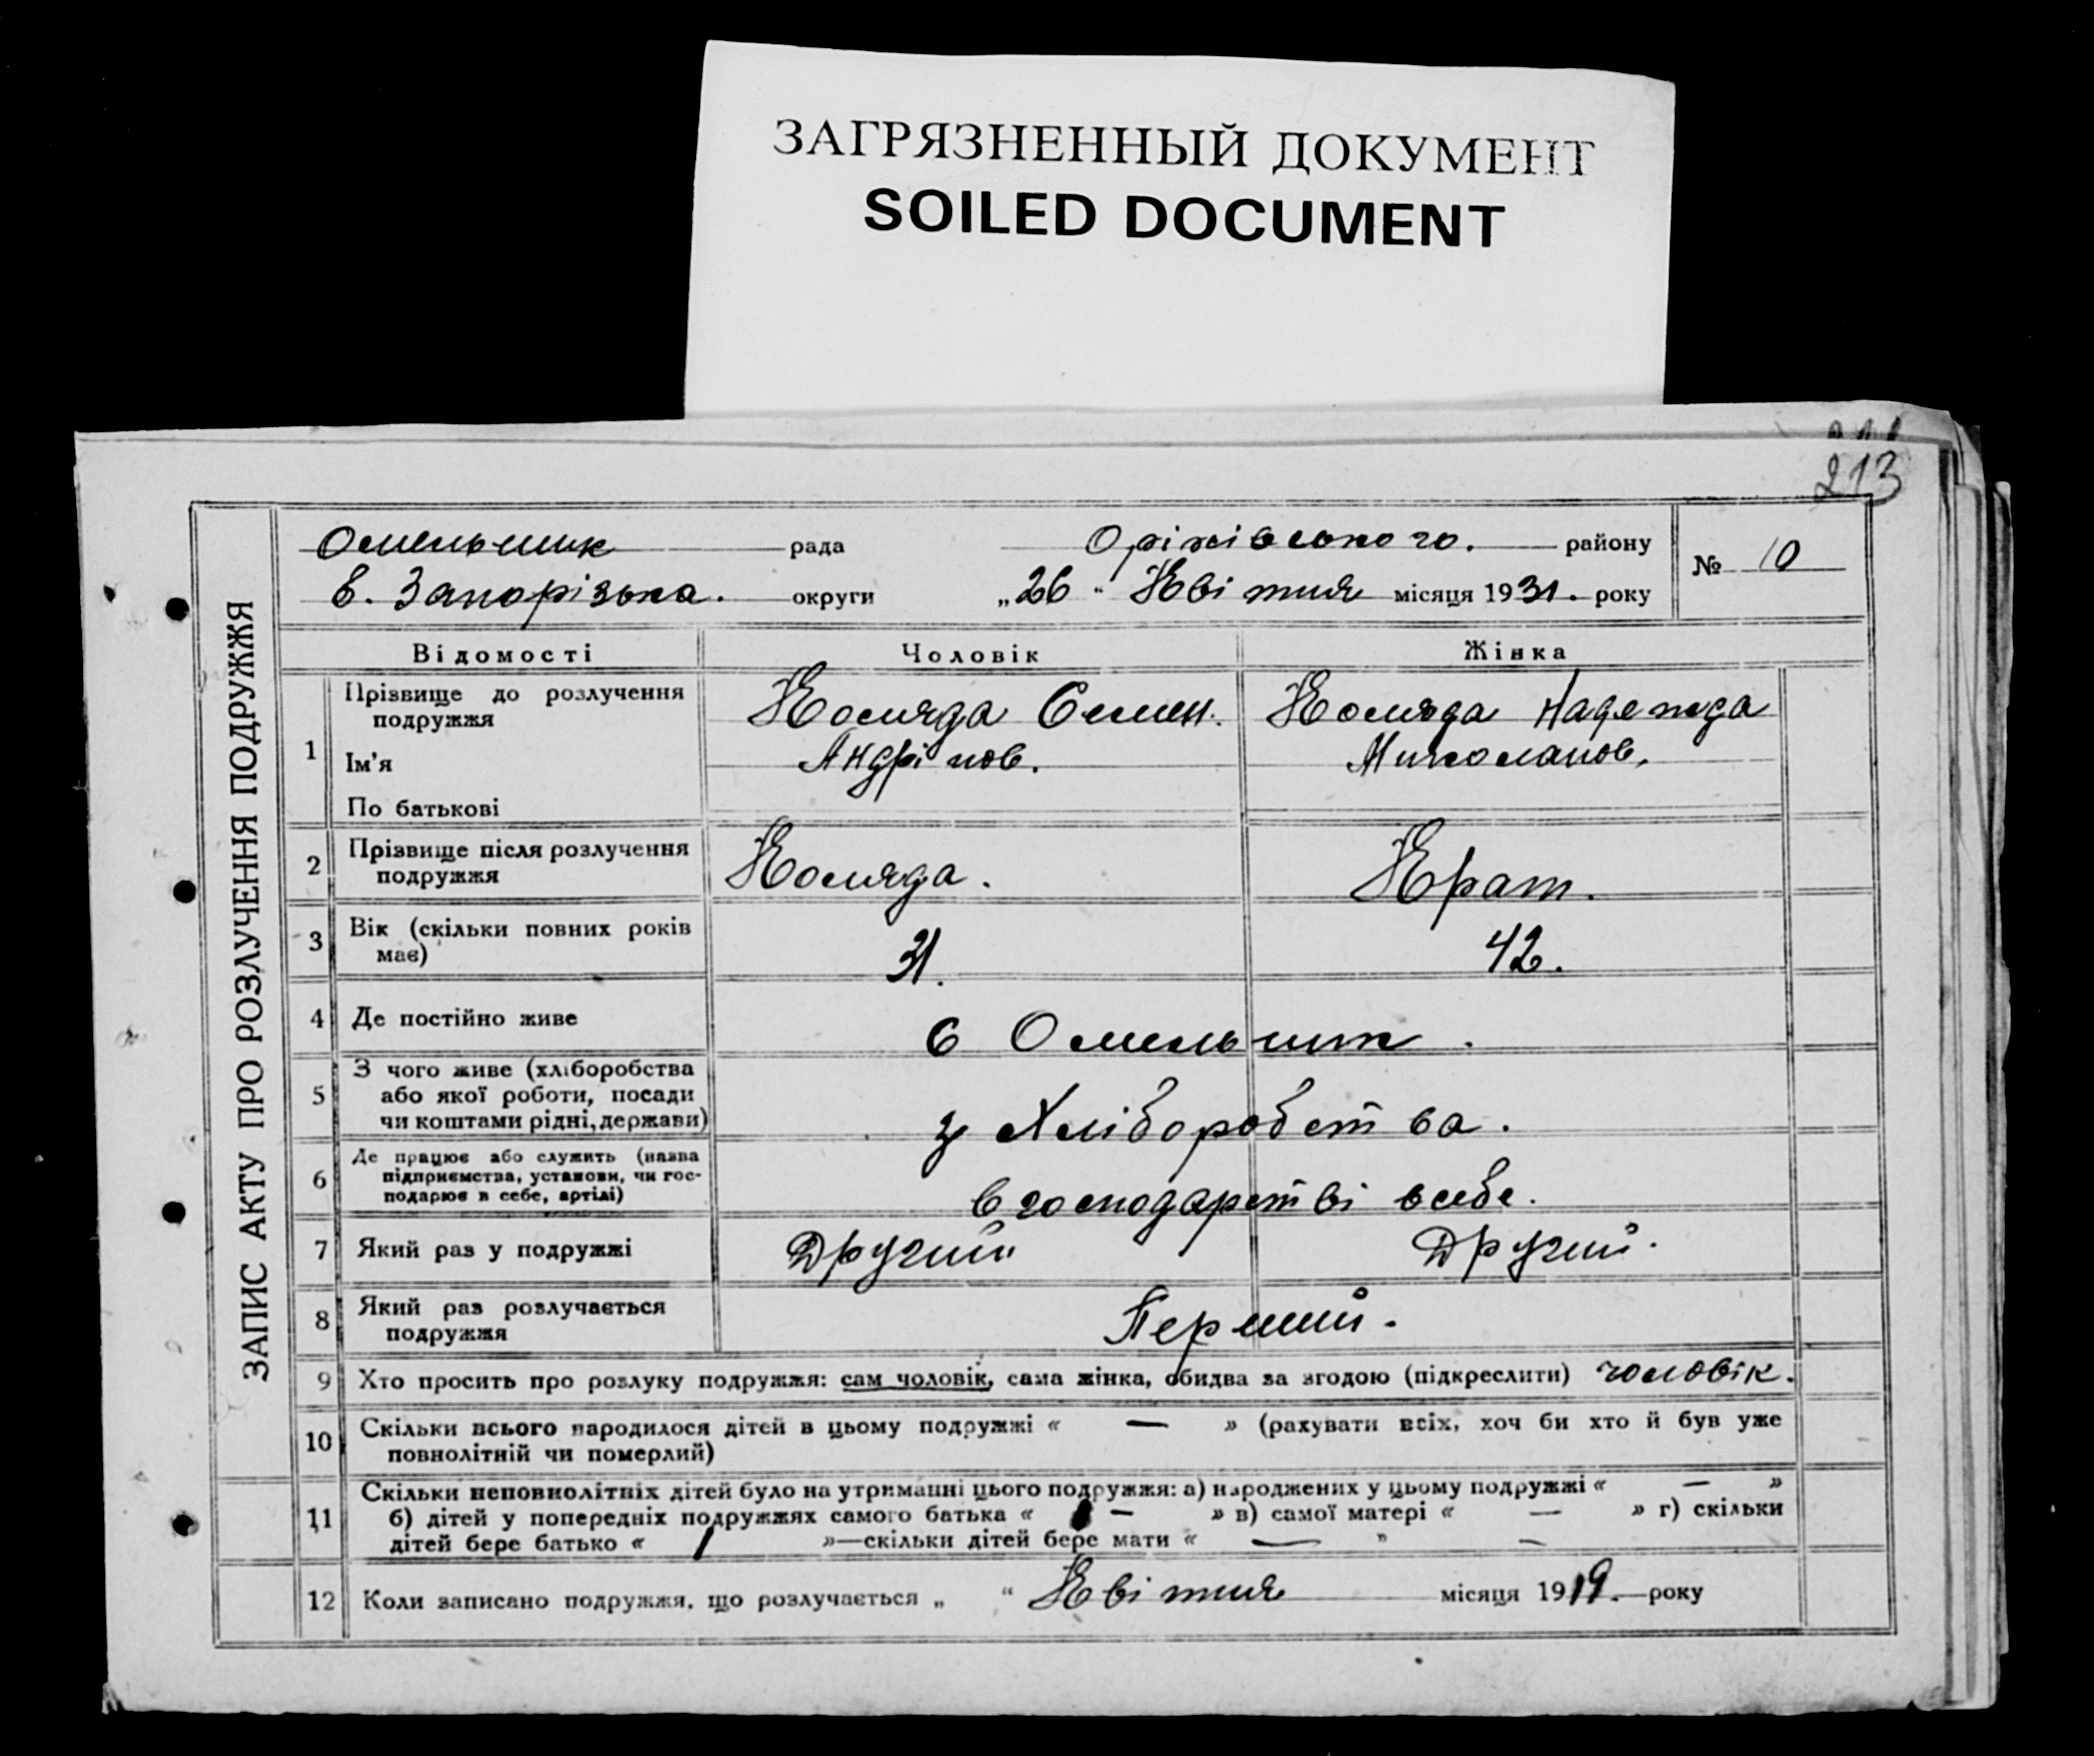 ЗАГРЯЗНЕННЫЙ ДОКУМЕНТ
SOILED DOCUMENT
213
ЗАПИС АКТУ ПРО РОЗЛУЧЕННЯ ПОДРУЖЖЯ
Омельник рада Оріхівського. району
б. Запорізька. округи „26" Квітня місяця 1931. року
№ 10
Відомості Чоловік Жінка
1 Прізвище до розлучення подружжя Коляда Семен. Коляда Надежда
Ім'я Андріїов. Миколаїов.
По батькові
2 Прізвище після розлучення
подружжя Коляда. Крат.
3 Вік (скільки повних років
має) 31. 42.
4 Де постійно живе С Омельник.
5 З чого живе (хліборобства
або якої роботи, посади
чи коштами рідні, держави) з Хліборобства.
6 Де працює або служить (назва
підприємства, установи, чи гос-
подарює в себе, артілі) в господарстві в себе.
7 Який раз у подружжі Другий Другий.
8 Який раз розлучається
подружжя Перший.
9 Хто просить про розлуку подружжя: сам чоловік, сама жінка, обидва за згодою (підкреслити) чоловік.
10 Скільки всього народилося дітей в цьому подружжі « — » (рахувати всіх, хоч би хто й був уже
повнолітній чи померлий)
11 Скільки неповнолітніх дітей було на утриманні цього подружжя: а) народжених у цьому подружжі « — »
б) дітей у попередніх подружжях самого батька « — » в) самої матері « — » г) скільки
дітей бере батько « / »—скільки дітей бере мати « — » —
12 Коли записано подружжя, що розлучається „ " Квітня місяця 1919. року